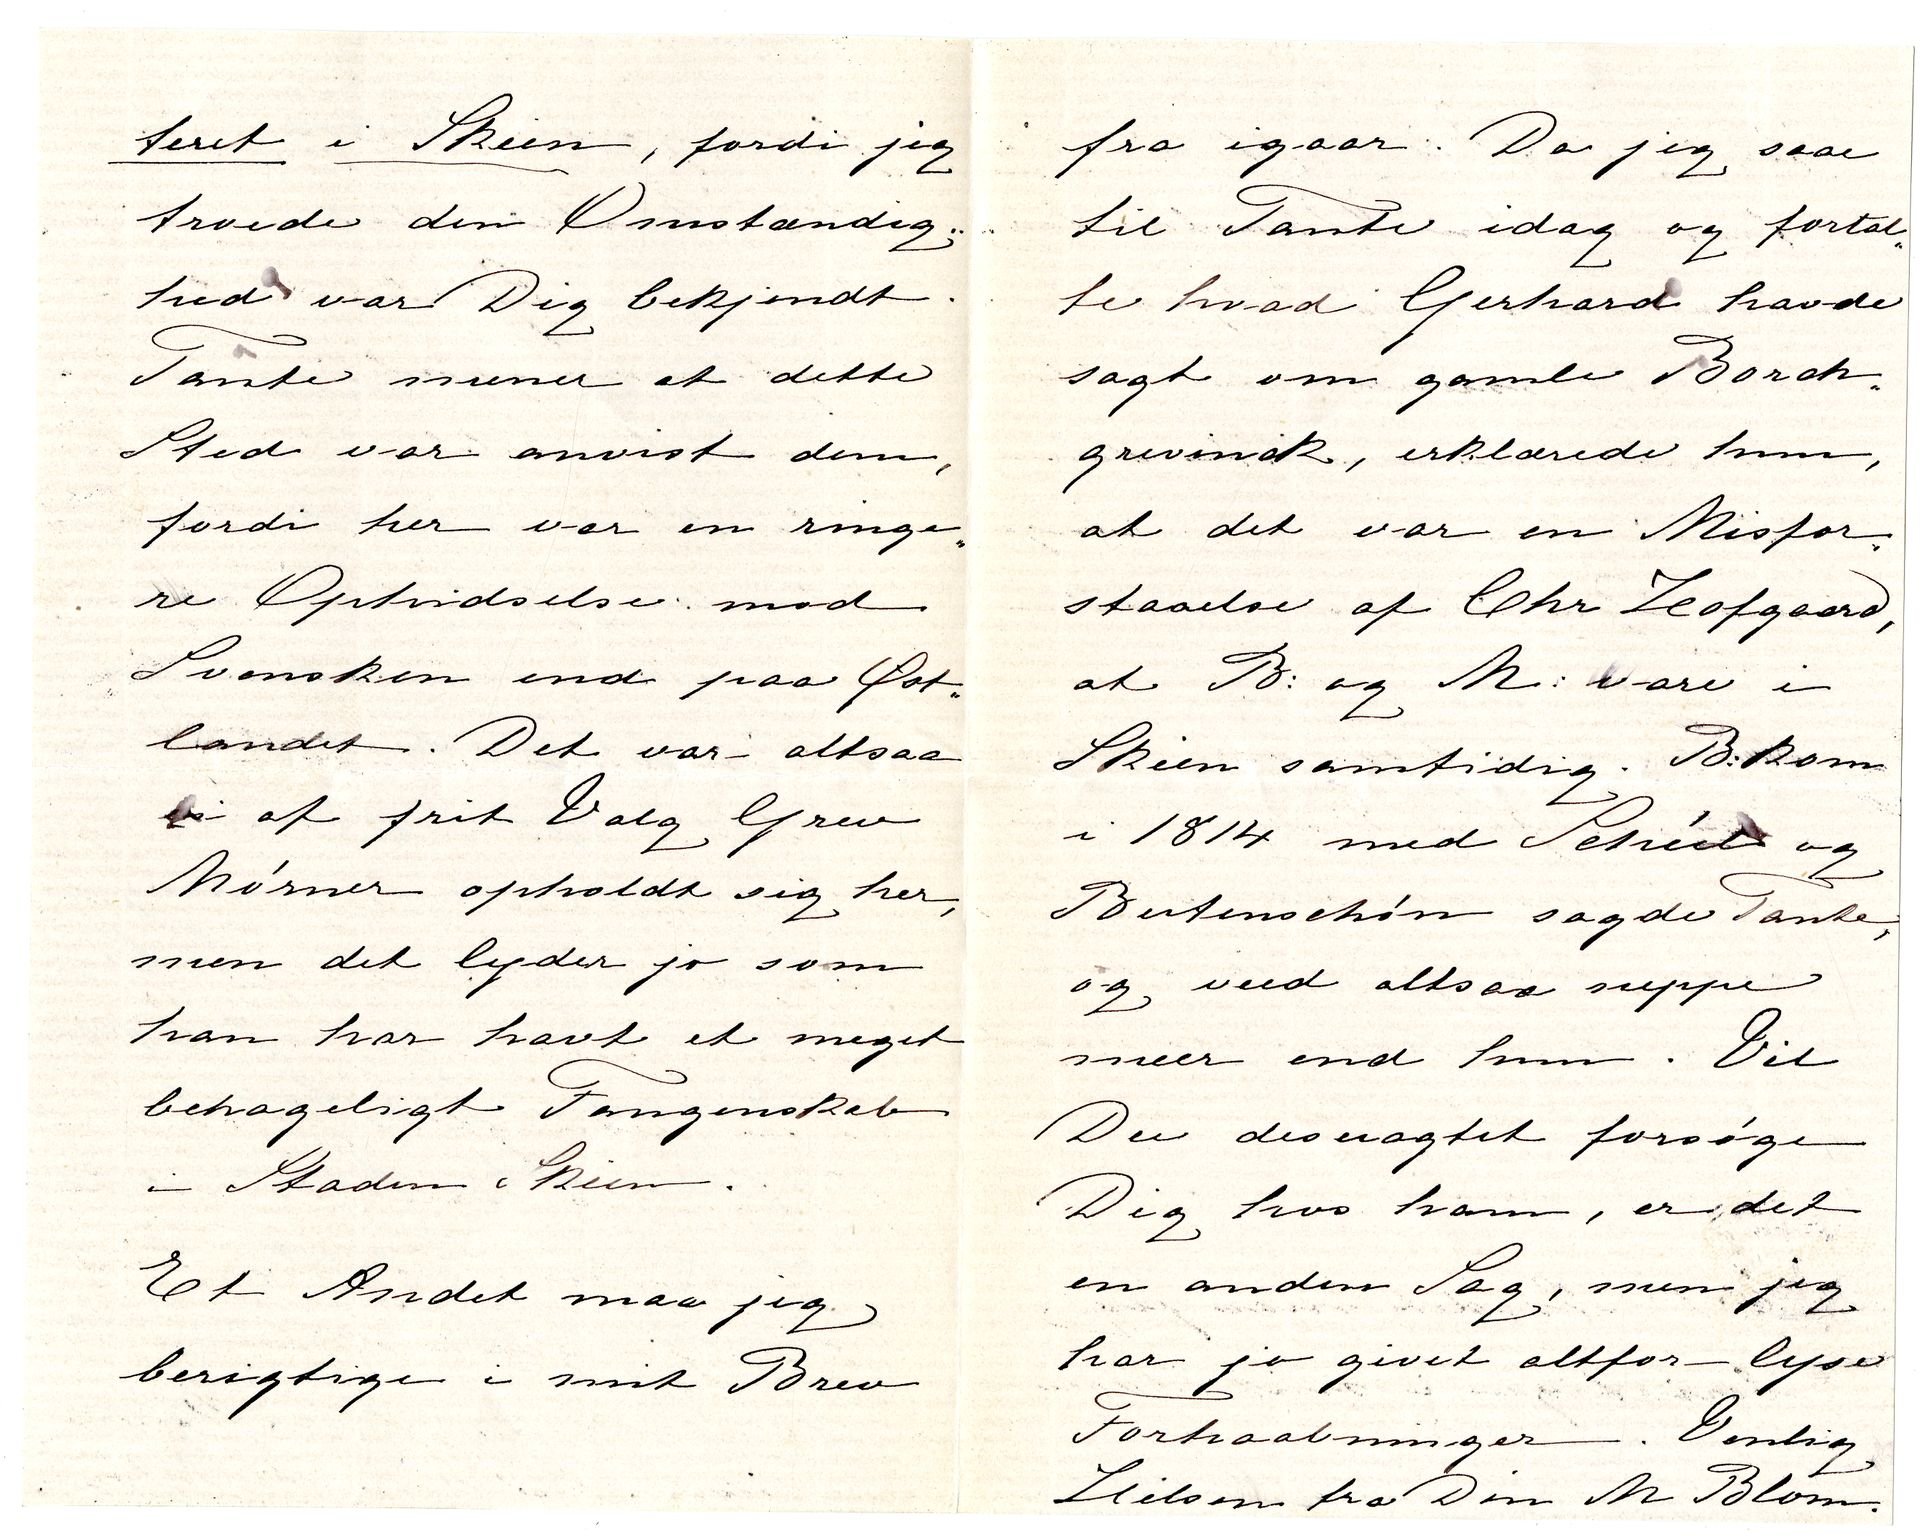 teret i Skien, fordi jeg
troede den Omstændig„
hed var Dig bekjendt.
Tante mener at dette
Sted var anvist dem,
fordi her var en ringe„
re Ophidselse mod
Svensken end paa Øst„
landet. Det var altsaa
ei af frit Valg Grev
Mörner opholdt sig her,
men det lyder jo som
han har havt et meget
behageligt Fangenskab
i Staden Skien.
Et Andet maa jeg
berigtige i mit Brev
fra igaar. Da jeg saae
til Tante idag og fortal„
te hvad Gerhard havde
sagt om gamle Borch„
grevinck, erklærede hun,
at det var en Misfor„
staaelse af Chr Hofgaard,
at B: og M: vare i
Skien samtidig. B: kom
i 1814 med og
Butenschön sagde Tante,
og veed altsaa neppe
meer end hun. Vil
Du desuagtet forsøge
Dig hos ham, er det
en anden Sag, men jeg
har jo givet altfor lyse
Forhaabninger. Venlig
Hilsen fra Din M Blom.